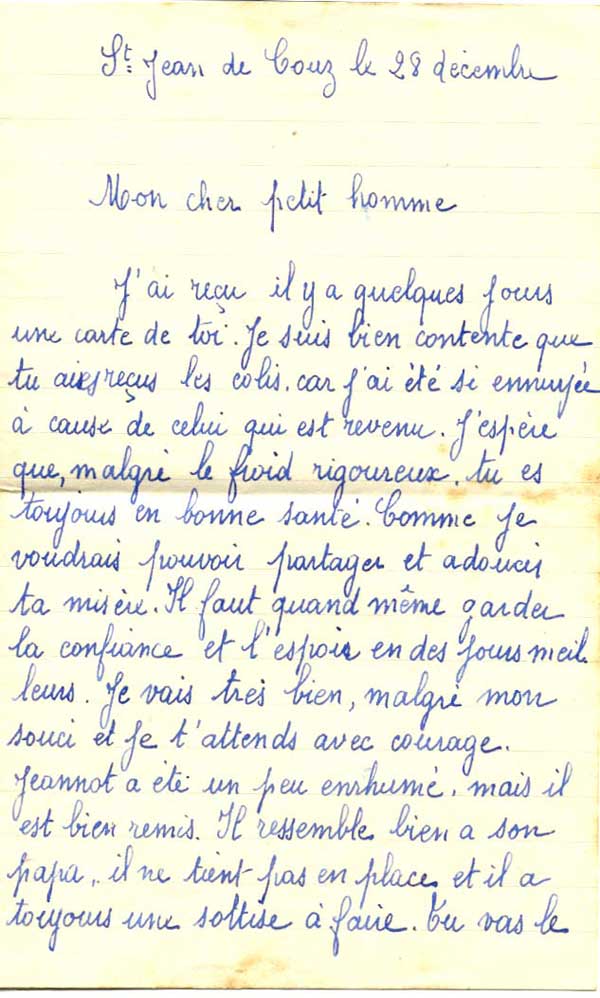 St: Jean de Couz le 28 décembre
Mon cher petit homme
J'ai reçu il y a quelques jours
une carte de toi. Je suis bien contente que
tu aies reçus les colis. car j'ai été si ennuyée
à cause de celui qui est revenu. J'espère
que, malgré le froid rigoureux, tu es
toujours en bonne santé. Comme je
voudrais pouvoir partager et adoucir
ta misère. Il faut quand même garder
la confiance et l'espoir en des jours meil
leurs. Je vais très bien, malgré mon
souci et je t'attends avec courage.
Jeannot a été un peu enrhumé, mais il
est bien remis. Il ressemble bien a son
papa, il ne tient pas en place et il a
toujours une sottise à faire. Tu vas le